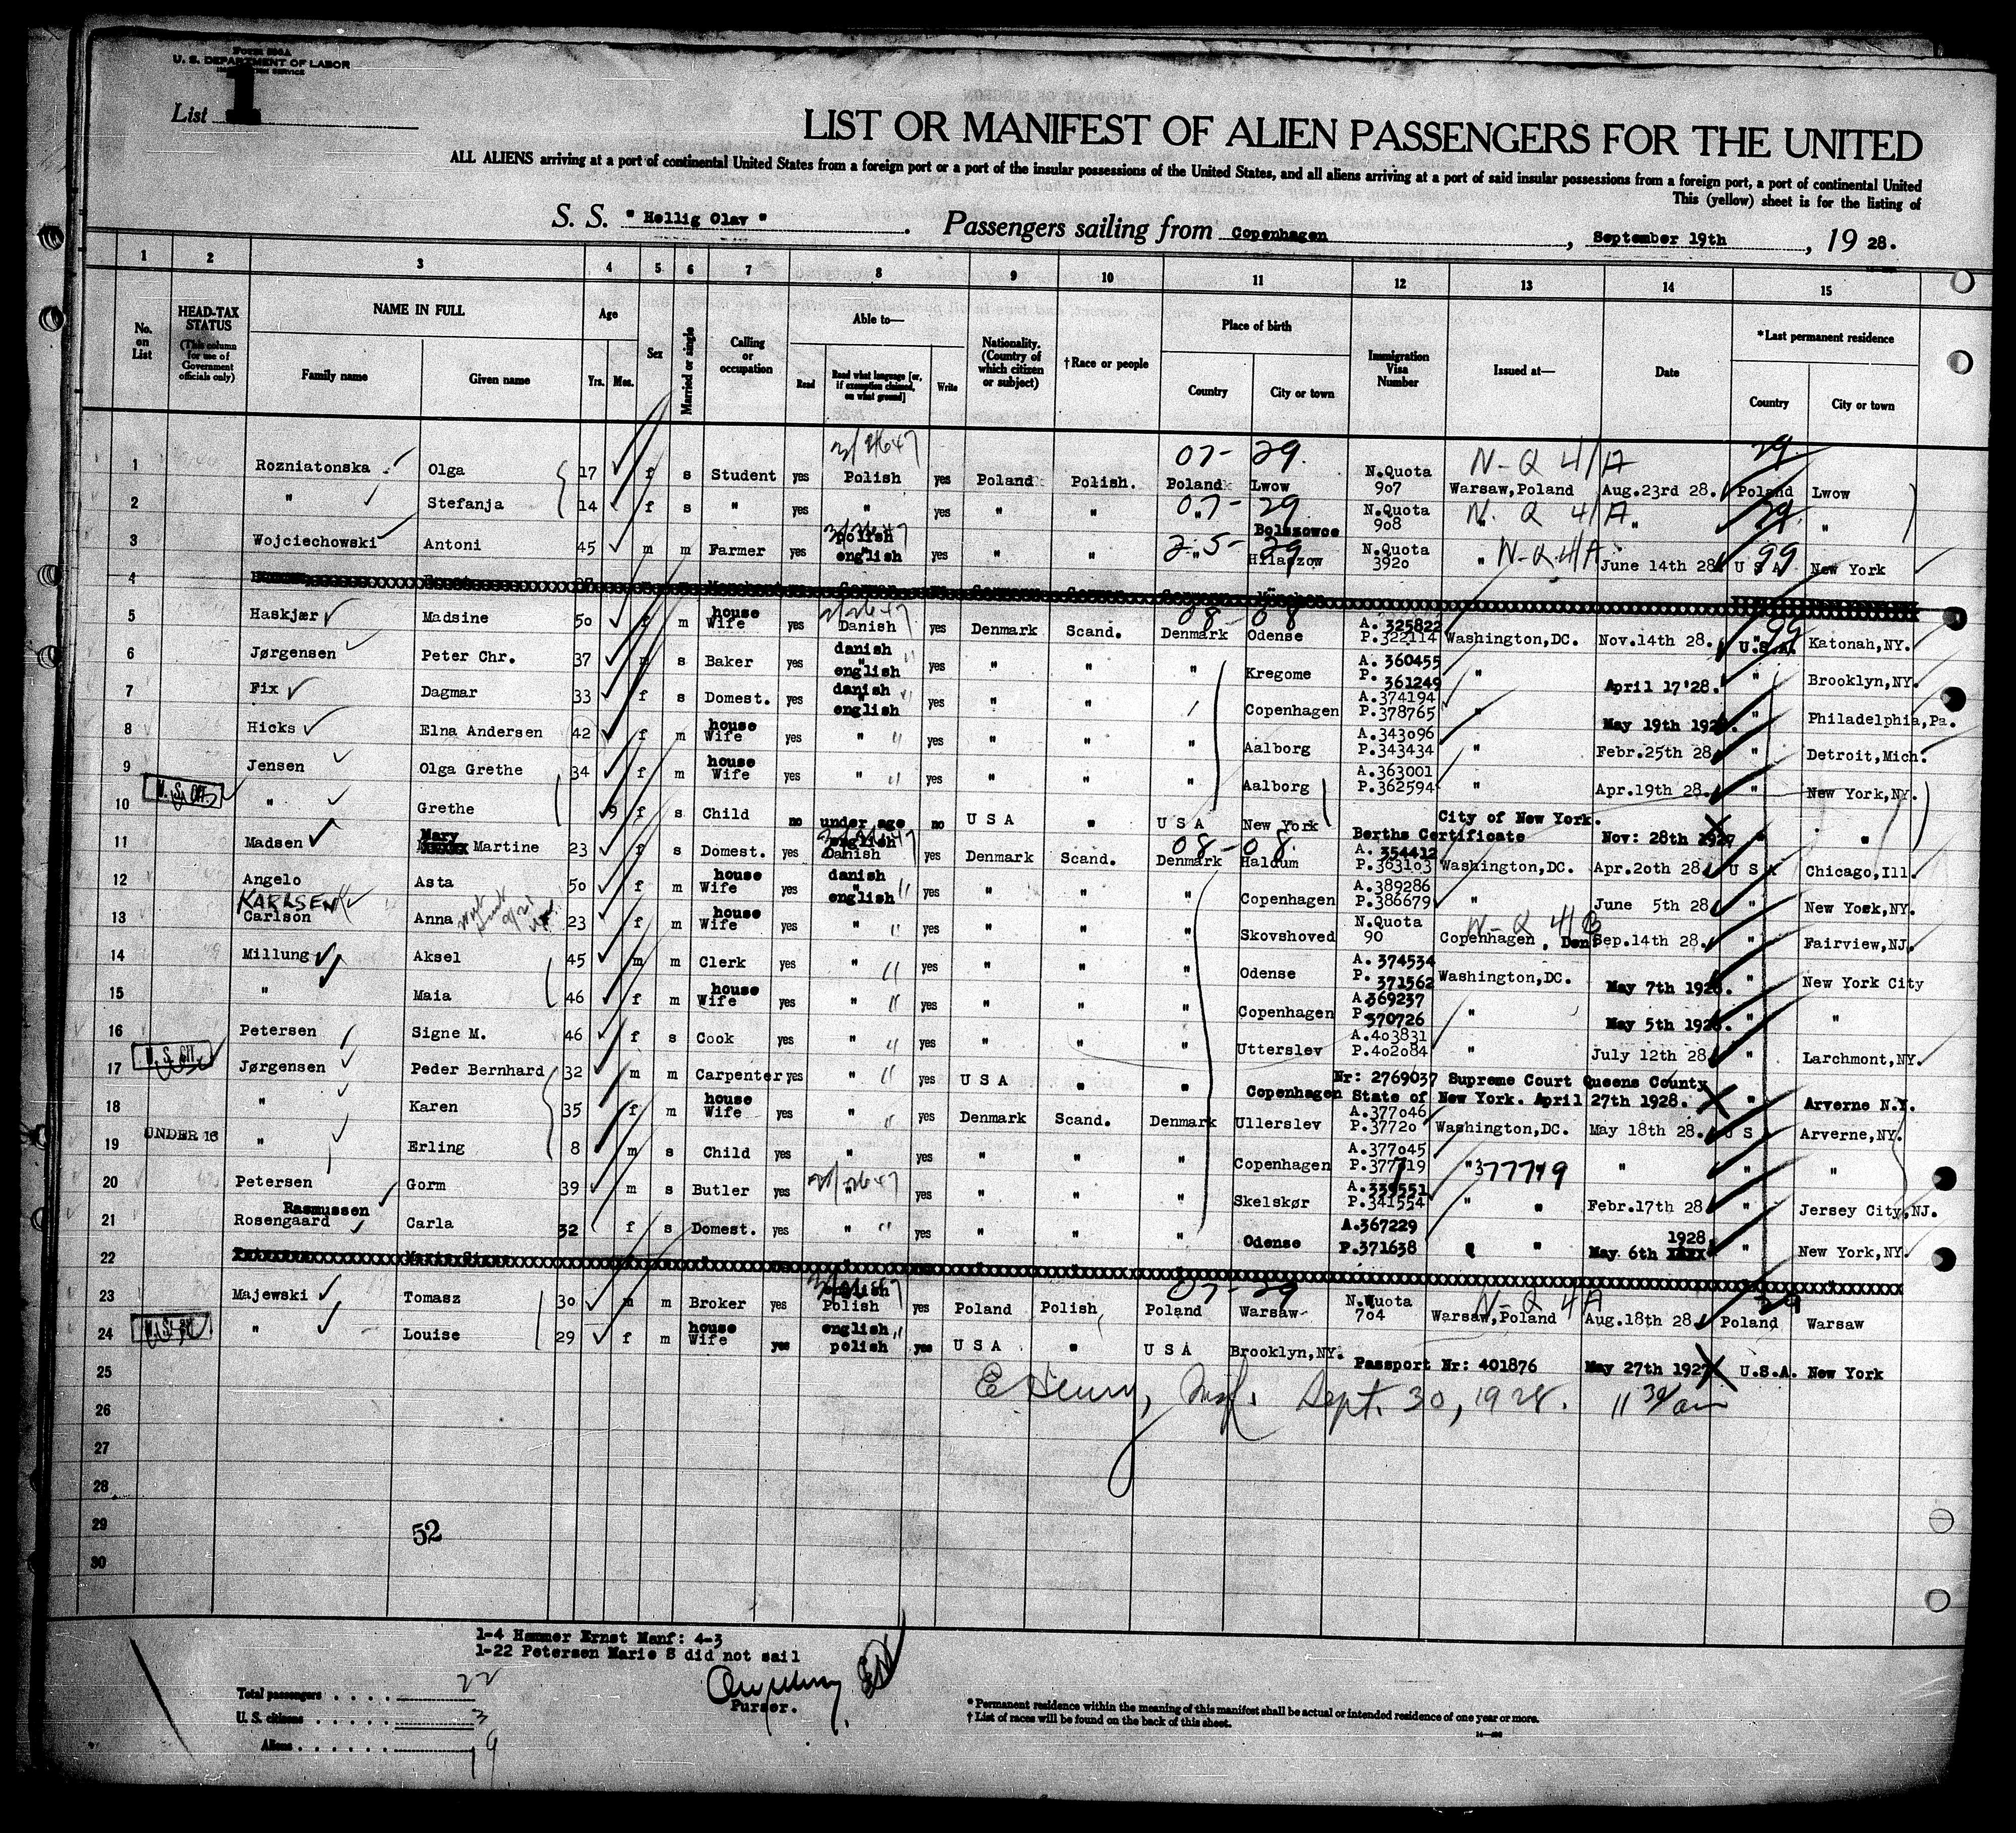 FORM 500A
U. S. DEPARTMENT OF LABOR
IMMIGRATION SERVICE
List 1
LIST OR MANIFEST OF ALIEN PASSENGERS FOR THE UNITED
ALL ALIENS arriving at a port of continental United States from a foreign port or a port of the insular possessions of the United States, and all aliens arriving at a port of said insular possessions from a foreign port, a port of continental United
This (yellow) sheet is for the listing of
S. S. " Hellig Olav ". Passengers sailing from Copenhagen, September 19th, 19 28.
1 2 3 4 5 6 7 8 9 10 11 12 13 14 15
No. on List
HEAD-TAX STATUS
(This column for use of Government officials only)
NAME IN FULL
Family name Given name
Age
Yrs. Mos.
Sex
Married or single
Calling or occupation
Able to—
Read
Read what language [or, if exemption claimed, on what ground]
Write
Nationality. (Country of which citizen or subject)
†Race or people
Place of birth
Country City or town
Immigration Visa Number
Issued at—
Date
*Last permanent residence
Country City or town
07- 29. N-Q 4/A 29.
1 Rozniatonska Olga 17 f s Student yes Polish yes Poland Polish. Poland Lwow N.Quota 907 Warsaw,Poland Aug.23rd 28. Poland Lwow
07- 29 N-Q 4/A 29.
2 " Stefanja 14 f s " yes " yes " " " " N.Quota 908 " " " "
25- 29 N-Q 4/A 99
3 Wojciechowski Antoni 45 m m Farmer yes polish english yes " " " Bolszowce N.Quota 3920 " June 14th 28 U S A New York
4
08-08 99
5 Haskjær Madsine 50 f m house Wife yes Danish yes Denmark Scand. Denmark Odense A. 325822 P.322114 Washington,DC. Nov.14th 28. U.S.A. Katonah,NY.
6 Jørgensen Peter Chr. 37 m s Baker yes danish english yes " " " Kregome A. 360455 P. 361249 " April 17'28. " Brooklyn,NY.
7 Fix Dagmar 33 f s Domest. yes danish english yes " " Copenhagen A.374194 P.378765 " May 19th 1928. " Philadelphia,Pa.
8 Hicks Elna Andersen 42 f m house Wife yes " yes " " " Aalborg A.343096 P.343434 " Febr.25th 28 " Detroit,Mich.
9 Jensen Olga Grethe 34 f m house Wife yes " yes " " " Aalborg A.363001 P.362594 " Apr.19th 28. " New York,NY.
U. S. CIT.
10 " Grethe 9 f s Child no under age no U S A " U S A New York City of New York. Berths Certificate Nov: 28th 1927 " "
08-08.
11 Madsen Mary Martine 23 f s Domest. yes english Danish yes Denmark Scand. Denmark Haldum A. 354412 P.363103 Washington,DC. Apr.20th 28 U S A Chicago,Ill.
12 Angelo Asta 50 f m house Wife yes danish english yes " " " Copenhagen A.389286 P.386679 " June 5th 28 " New York,NY.
KARLSEN N-Q 4/B
13 Carlson Anna 23 f m house Wife yes " yes " " " Skovshoved N.Quota 90 Copenhagen, Den Sep.14th 28. " Fairview,NJ.
14 Millung Aksel 45 m m Clerk yes " yes " " " Odense A. 374534 P. 371562 Washington,DC. May 7th 1928. " New York City
15 " Maia 46 f m house Wife yes " yes " " " Copenhagen A.369237 P.370726 " May 5th 1928. " "
16 Petersen Signe M. 46 f s Cook yes " yes " " " Utterslev A.403831 P.402084 " July 12th 28 " Larchmont,NY.
U. S. CIT.
17 Jørgensen Peder Bernhard 32 m m Carpenter yes " yes U S A " " Copenhagen Nr: 2769037 Supreme Court Queens County State of New York. April 27th 1928. " Arverne N.Y.
18 " Karen 35 f m house Wife yes " yes Denmark Scand. Denmark Ullerslev A.377046 P.37720 Washington,DC. May 18th 28. U S A Arverne,NY.
UNDER 16
19 " Erling 8 m s Child yes " yes " " " Copenhagen A.377045 P.377719 " 377719 " " "
20 Petersen Gorm 39 m s Butler yes " yes " " " Skelskør A.339551 P.341554 " " Febr.17th 28 " Jersey City,NJ.
21 Rasmussen Rosengaard Carla 32 f s Domest. yes " yes " " " Odense A.367229 P.371638 " " May 6th 1928 " New York,NY.
22
07-29 N-Q 4/A 29
23 Majewski Tomasz 30 m m Broker yes english Polish yes Poland Polish Poland Warsaw N.Quota 704 Warsaw,Poland Aug.18th 28 Poland Warsaw
24 " Louise 29 f m house Wife yes english polish yes U S A " U S A Brooklyn,NY. Passport Nr: 401876 May 27th 1927 U.S.A. New York
25
Sept. 30, 1928. 11 30 am
26
27
28
29
52
30
1-4 Hammer Ernst Manf: 4-3
1-22 Petersen Marie S did not sail
Purser.
Total passengers . . . . 22
U. S. citizens . . . . . 3
Aliens . . . . . . 19
* Permanent residence within the meaning of this manifest shall be actual or intended residence of one year or more.
† List of races will be found on the back of this sheet.